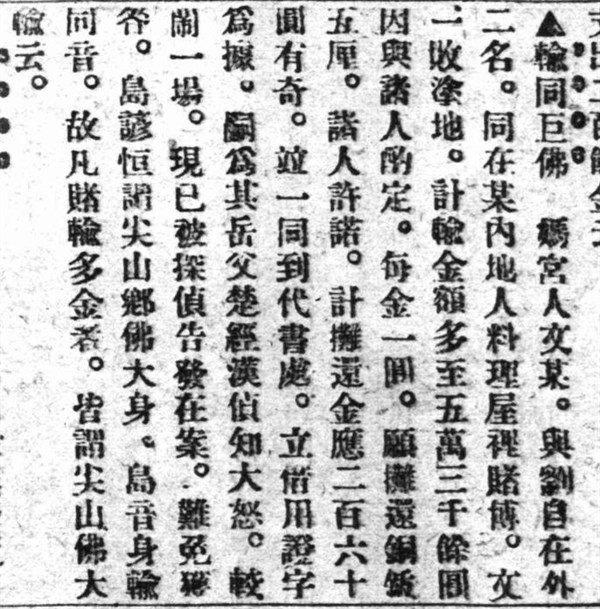 ▲輸同巨佛　媽宮人文某。與劉自在外
二名。同在某內地人料理屋裡賭博。文
一敗塗地。計輸金額多至五萬三千餘圓
因與諸人酌定。每金一圓。願攤還銅錢
五厘。諸人許諾。計攤還金應二百六十
圓有奇。竝一同到代書處。立借用證字
為據。嗣為其岳父楚經漢偵知大怒。較
鬧一場。現已被探偵告發在案。難免獲
咎。島諺恒謂尖山鄉佛大身、島音身輸
同音。故凡賭輸多金者。皆謂尖山佛大
輸云。